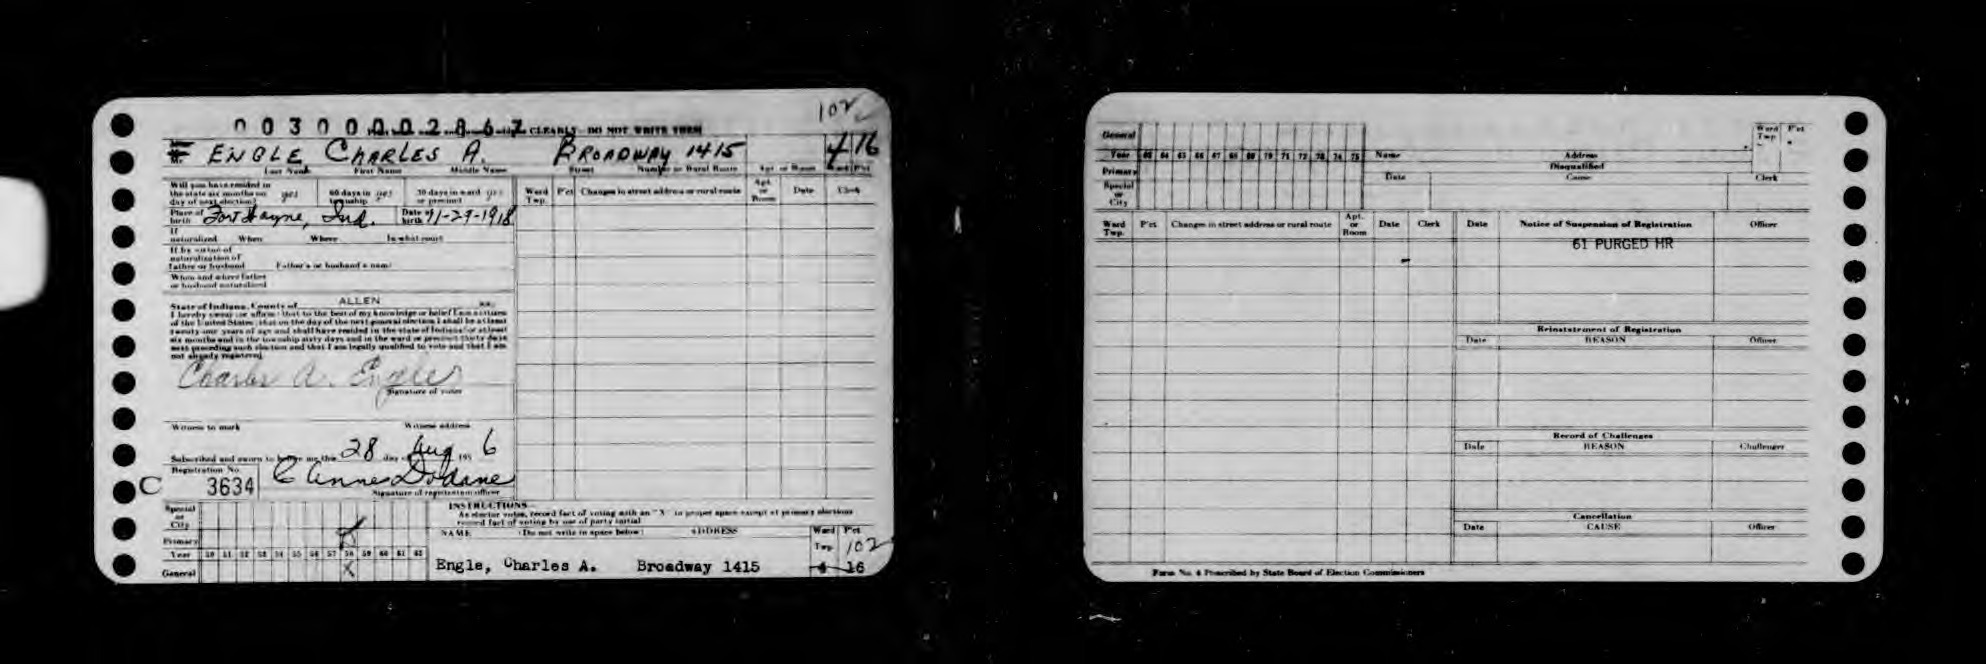 102
0 0 3 0 0 0 0 2 8 6 7 CLEARLY - DO NOT WRITE THEM
ENGLE, CHARLES A. BROADWAY 1415 4 16
Last Name First Name Middle Name Street Number or Rural Route Apt or Room Ward P'ct
Will you have resided in the state six months on day of next election? yes 60 days in township yes 30 days in ward or precinct yes
Ward Twp. P'ct Changes in street address or rural route Apt. or Room Date Clerk
Place of birth Fort Wayne, Ind. Date of birth 11-29-1918
If naturalized When Where In what court
If by virtue of naturalization of father or husband Father's or husband's name
When and where father or husband naturalized
State of Indiana, County of ALLEN ss.
I hereby swear (or affirm) that to the best of my knowledge or belief I am a citizen
of the United States; that on the day of the next general election I shall be at least
twenty-one years of age and shall have resided in the state of Indiana for at least
six months and in the township sixty days and in the ward or precinct thirty days
next preceding such election and that I am legally qualified to vote and that I am
not already registered.
Charles A. Engle
Signature of voter
Witness to mark Witness address
Subscribed and sworn to before me this 28 day of Aug 195 6
Registration No.
C 3634 C Anne Dodane
Signature of registration officer
Special or City
Primary X
Year 50 51 52 53 54 55 56 57 58 59 60 61 62
General X
INSTRUCTIONS-
As elector votes, record fact of voting with an "X" in proper space except at primary elections
record fact of voting by use of party initial
NAME (Do not write in space below) ADDRESS Ward Twp. P'ct
102
Engle, Charles A. Broadway 1415 4 16
General
Year 63 64 65 66 67 68 69 70 71 72 73 74 75
Primary
Special or City
Name Address Ward Twp. P'ct
Disqualified
Date Cause Clerk
Ward Twp. P'ct Changes in street address or rural route Apt. or Room Date Clerk
Date Notice of Suspension of Registration Officer
61 PURGED HR
Reinstatement of Registration
Date REASON Officer
Record of Challenges
Date REASON Challenger
Cancellation
Date CAUSE Officer
Form No. 4 Prescribed by State Board of Election Commissioners